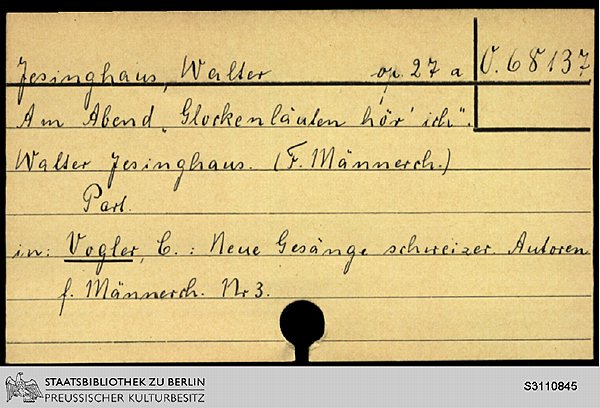 Jesinghaus, Walter op. 27 a O. 68137
Am Abend „Glockenläuten hör' ich".
Walter Jesinghaus. (F. Männerch.)
Part.
in: Vogler, C.: Neue Gesänge schweizer. Autoren
f. Männerch. Nr 3.
STAATSBIBLIOTHEK ZU BERLIN
PREUSSISCHER KULTURBESITZ
S3110845